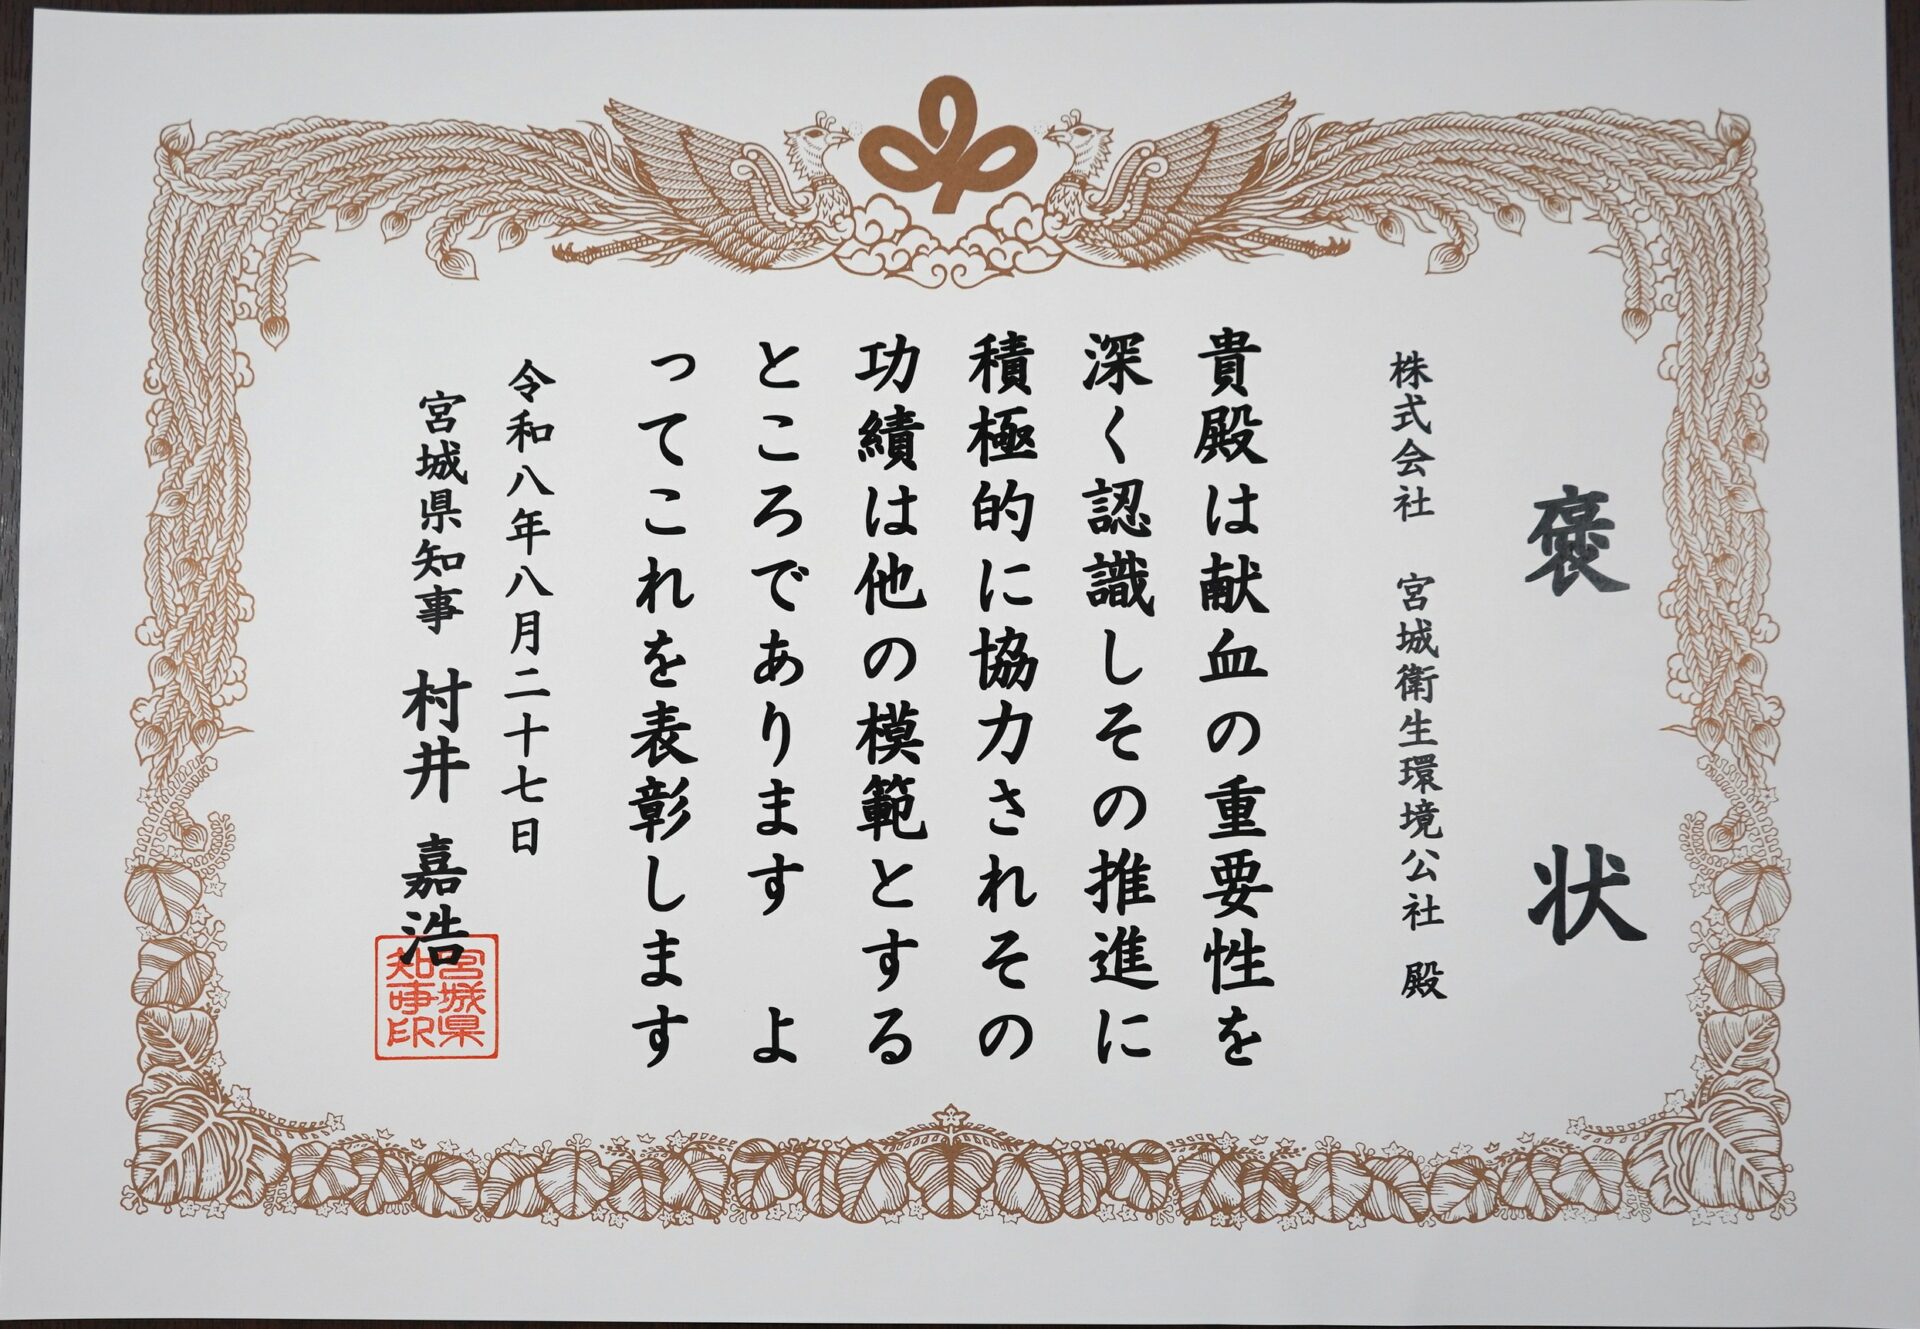 褒状
株式会社 宮城衛生環境公社 殿
貴殿は献血の重要性を
深く認識しその推進に
積極的に協力されその
功績は他の模範とする
ところであります よ
ってこれを表彰します
令和八年八月二十七日
宮城県知事 村井 嘉浩
宮城県
知事印